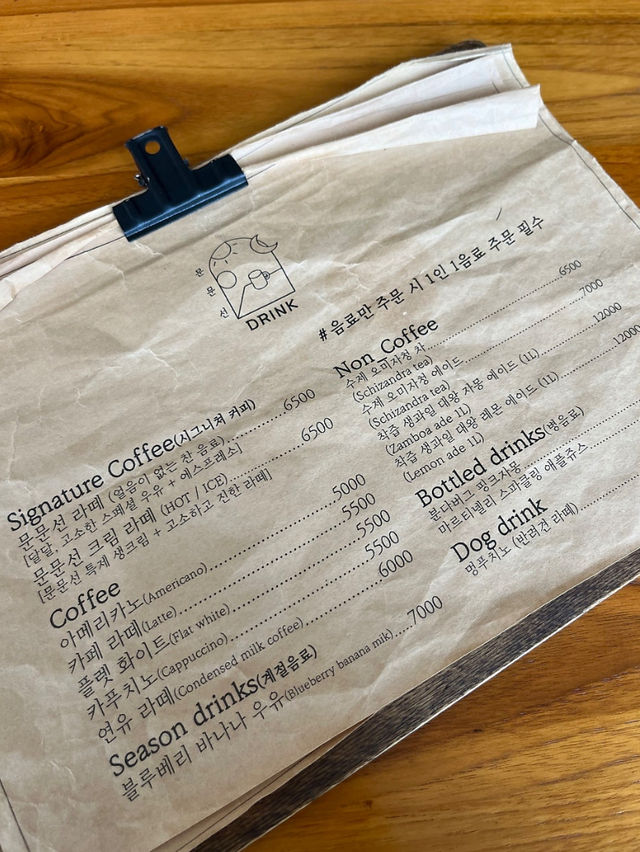 문
문
선
DRINK
#음료만 주문 시 1인 1음료 주문 필수
Signature Coffee(시그니쳐 커피)
문문선 라떼 (얼음이 없는 찬 음료)..........6500
[달달, 고소한 스페셜 우유 + 에스프레소]
문문선 크림 라떼 (HOT / ICE)..........6500
[문문선 특제 생크림 + 고소하고 진한 라떼]
Coffee
아메리카노(Americano)..........5000
카페 라떼(Latte)..........5500
플랫 화이트(Flat white)..........5500
카푸치노(Cappuccino)..........5500
연유 라떼(Condensed milk coffee)..........6000
Season drinks(계절음료)
블루베리 바나나 우유(Blueberry banana milk)....7000
Non_Coffee
수제 오미자청 차..........6500
(Schizandra tea)
수제 오미자청 에이드..........7000
(Schizandra tea)
착즙 생과일 대왕 자몽 에이드 (1L)..........12000
(Zamboa ade 1l)
착즙 생과일 대왕 레몬 에이드 (1L)..........12000
(Lemon ade 1l)
Bottled drinks(병음료)
분다버그 핑크자몽
마르티넬리 스파클링 애플쥬스
Dog drink
멍푸치노 (반려견 라떼)